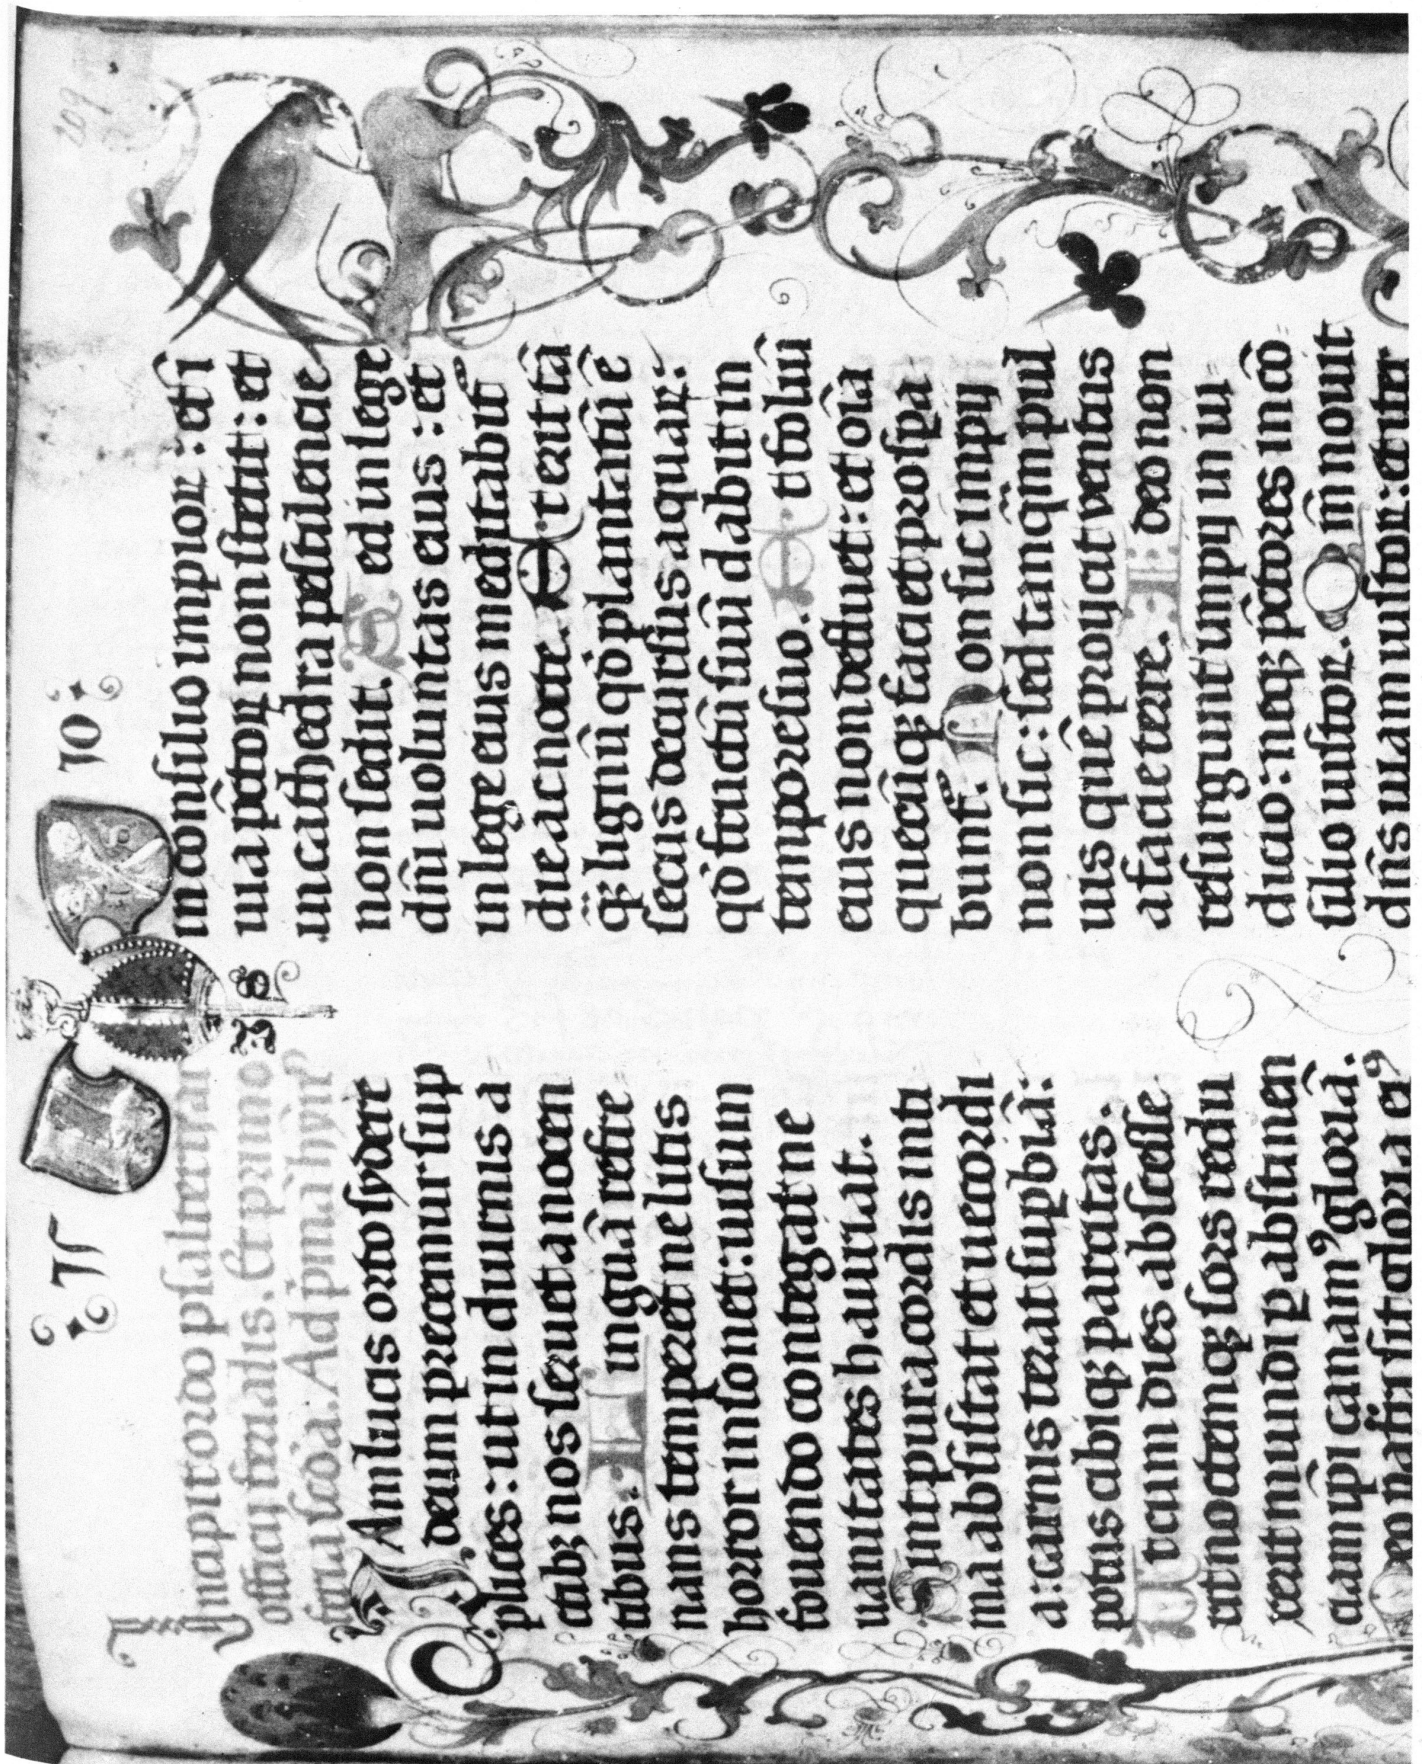 209
JL
JO
38
Incipit ordo psalterij
officij ferialis. Et primo
feria scd̄a. Ad p̄mā hȳn9
IAm lucis orto sydere
deum precemur sup
plices: ut in diurnis a
ctibꝫ nos seruet a nocen
tibus. Linguā refre
nans temperet ne litis
horror insonet: uisum
fouendo contegat ne
uanitates hauriat.
Sint pura cordis inti
ma absistat et uecordi
a: carnis terat suꝑbiā:
potus cibiqꝫ parcitas.
Ut cum dies abscesse
rit noctemqꝫ sors redu
xerit mundi ꝑ abstinen
ciam ip̄i canamꝰ gloriā.
Deo patri sit gloria eiꝰ
in consilio impioꝝ: et i
uia p̄ctoꝝ non stetit: et
in cathedra pestilencie
non sedit. Sed in lege
dn̄i uoluntas eius: et
in lege eius meditabit᷑
die ac nocte. Et erit tā
qꝫ lignū qd̓ plantatū ē
secus decursus aquaꝝ:
qd̓ fructū suū dabit in
tempore suo. Et foliū
eius non defluet: et oīa
quecūqꝫ faciet prospa
bunt᷑. Non sic impij
non sic: sed tanq̄m pul
uis quē proijcit ventus
a facie terre. Ideo non
resurgunt impij in iu
dicio: neqꝫ p̄ctores in cō
silio iustoꝝ. Qm̄ nouit
dn̄s uiam iustoꝝ: et iter